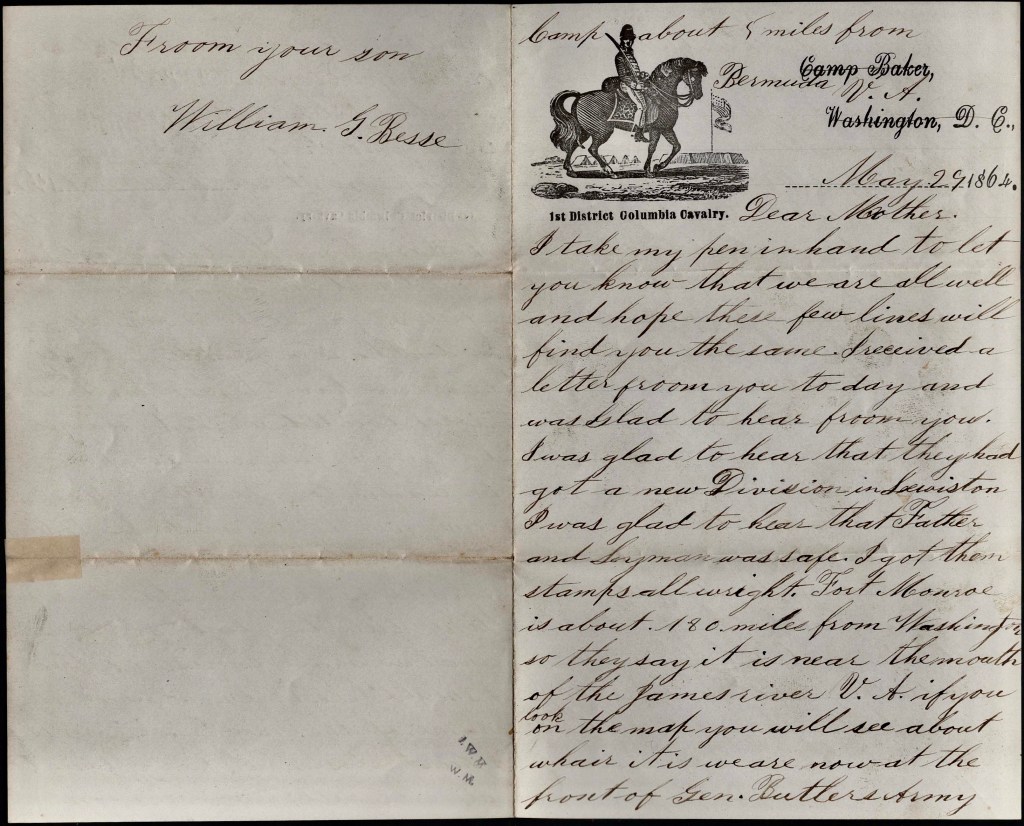 Froom your son
William. G. Besse
Camp about 5 miles from
Camp Baker,
Bermuda V. A.
Washington, D. C.,
May 29 1864.
1st District Columbia Cavalry.
Dear Mother.
I take my pen in hand to let
you know that we are all well
and hope these few lines will
find you the same. I received a
letter froom you to day and
was Glad to hear froom you.
I was glad to hear that they had
got a new Division in Lewiston
I was glad to hear that Father
and Luyman was safe. I got them
stamps all wright. Fort Monroe
is about. 180 miles from Washington
so they say it is near the mouth
of the James river V. A. if you
look
on the map you will see about
whair it is we are now at the
front of Gen. Butlers Army
W. M.